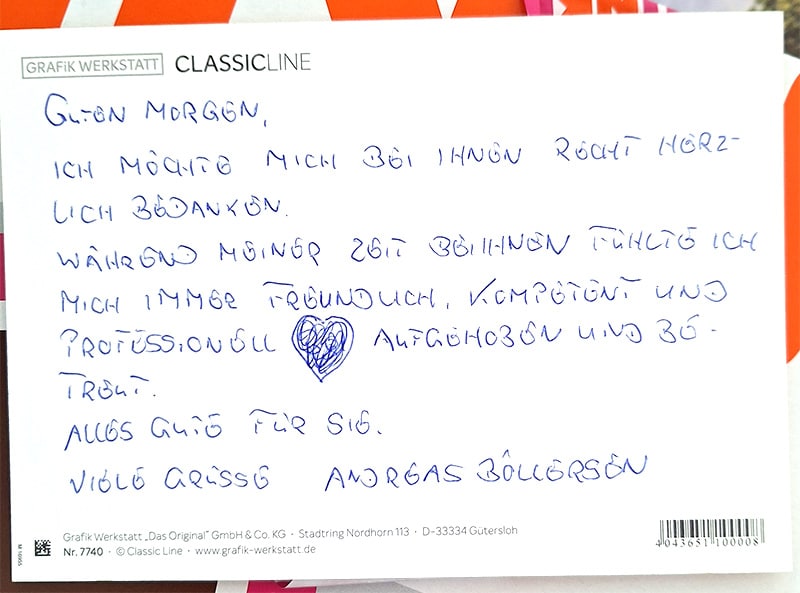 GRAFiK WERKSTATT CLASSICLINE
GUTEN MORGEN,
ICH MÖCHTE MICH BEI IHNEN RECHT HERZ-
LICH BEDANKEN.
WÄHREND MEINER ZEIT BEI IHNEN FÜHLTE ICH
MICH IMMER FREUNDLICH, KOMPETENT UND
PROFESSIONELL AUFGEHOBEN UND BE-
TREUT.
ALLES GUTE FÜR SIE.
VIELE GRÜSSE ANDREAS BÖLLERSEN
Grafik Werkstatt „Das Original“ GmbH & Co. KG · Stadtring Nordhorn 113 · D-33334 Gütersloh
Nr. 7740 · © Classic Line · www.grafik-werkstatt.de
4 043651 100008